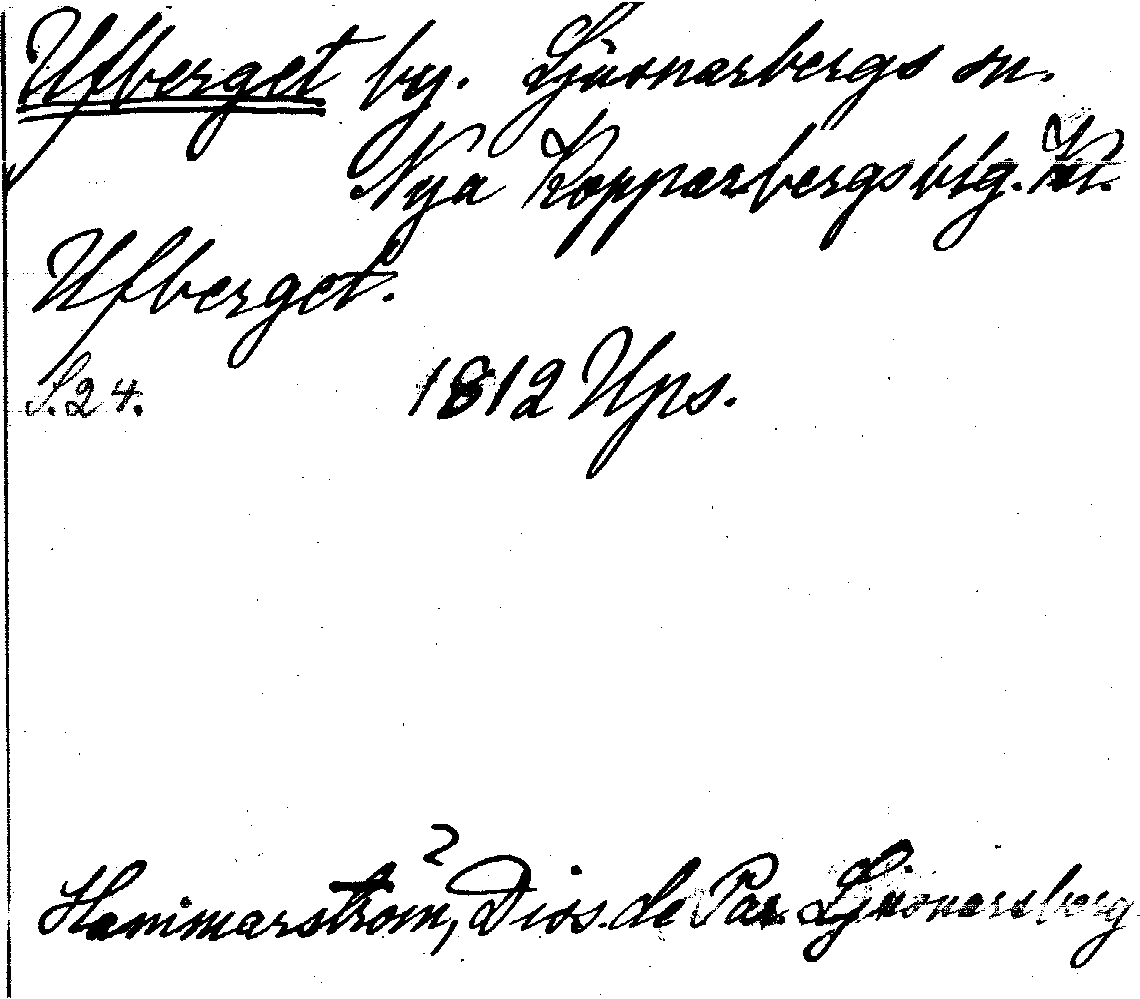 Ufberget by. Ljusnarsbergs sn.
Nya Kopparbergs blg. Kt.
Ufberget.
S. 24. 1812 Ups.
2
Hammarstrom, Diss. de Par. Ljusnarsberg